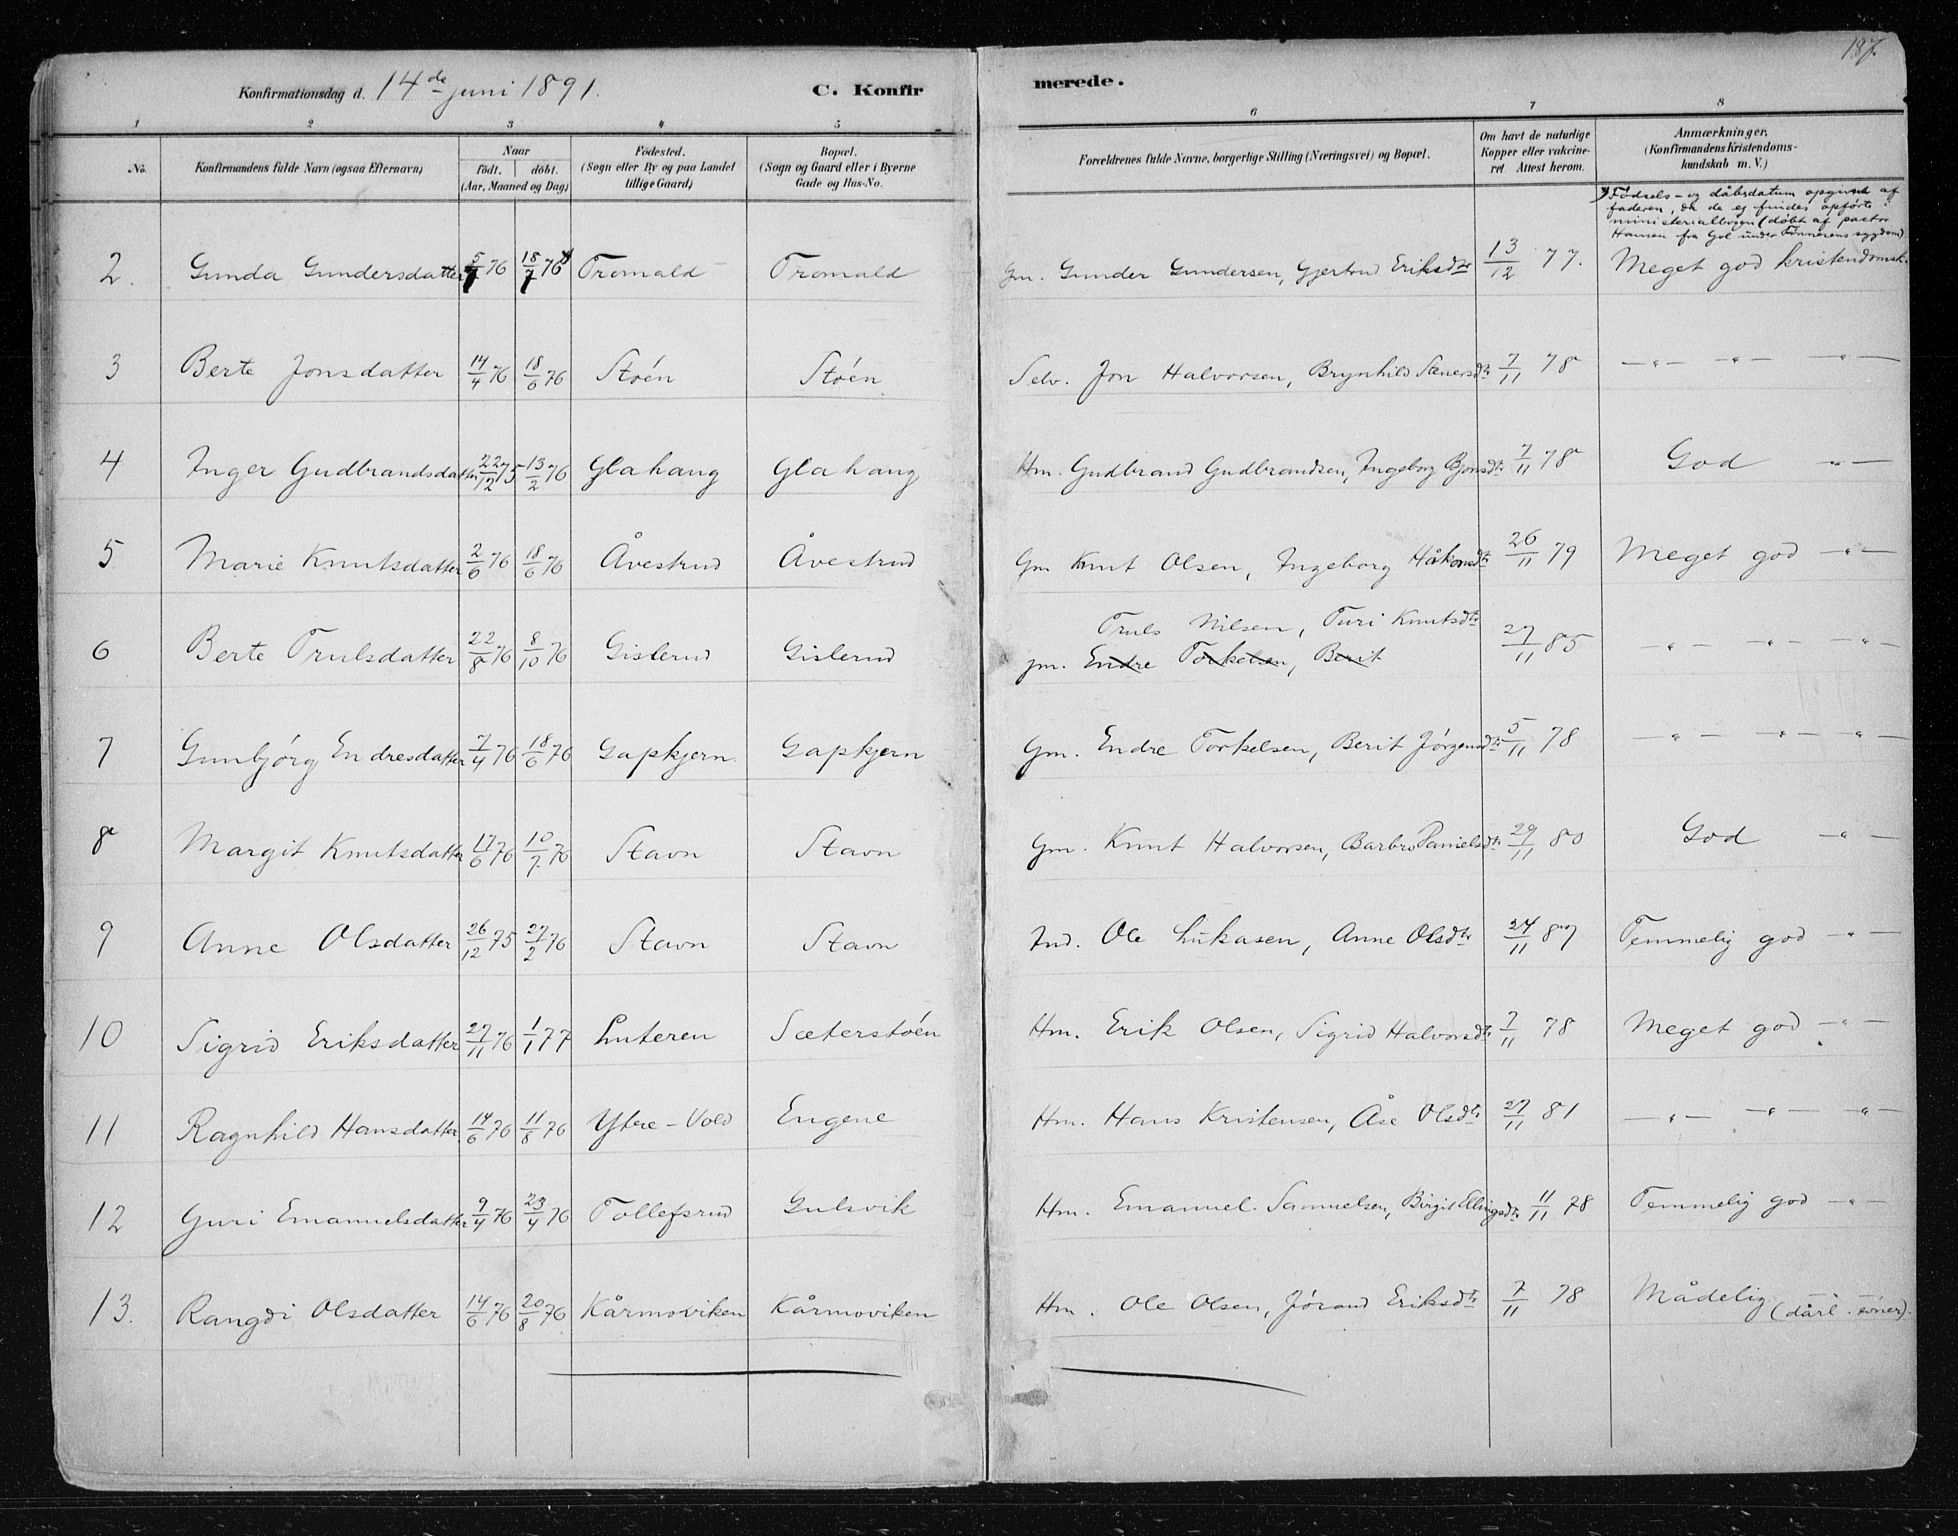 187.
Konfirmationsdag d. 14de juni 1891. C. Konfirmerede.
1 2 3 4 5 6 7 8
No. Konfirmandens fulde Navn (ogsaa Efternavn) Naar födt. döbt. (Aar, Maaned og Dag) Födested. (Sogn eller By og paa Landet tillige Gaard) Bopæl. (Sogn og Gaard eller i Byerne Gade og Hus-No. Forældrenes fulde Navne, borgerlige Stilling (Næringsvei) og Bopæl. Om havt de naturlige Kopper eller vakcineret. Attest herom. Anmærkninger. (Konfirmandens Kristendomskundskab m. V.)
Födsels- og dåbsdatum opgivet af
faderen, da de ej findes opförte i
ministerialbogen (döbt af pastor
Hansen fra Gol under Tönnesens sygdom)
2. Gunda Gundersdatter 5/7 76 18/7 76 Tromald Tromald Gm. Gunder Gundersen, Gjertrud Eriksdtr 13/12 77. Meget god kristendomsk.
3 Berte Jonsdatter 14/4 76 18/6 76 Stöén Stöén Selv. Jon Halvorsen, Brynhild 7/11 78 —„— —„— —„—
4 Inger Gudbrandsdatter 22/12 75 13/2 76 Glahaug Glahaug Hm. Gudbrand Gudbrandsen, Ingeborg 7/11 78 God —„—
5 Marie Knutsdatter 2/6 76 18/6 76 Åvestrud Åvestrud Gm Knut Olsen, Ingeborg Håkonsdtr 26/11 79 Meget god —„—
Truls Nilsen, Turi Knutsdtr
6 Berte Trulsdatter 22/8 76 8/10 76 Gislerud Gislerud Gm. Endre Torkelsen, Berit 27/11 85 —„— —„— —„—
7 Gunbjörg Endresdatter 7/4 76 18/6 76 Gapkjern Gapkjern Gm. Endre Torkelsen, Berit Jörgensdtr 5/11 78 —„— —„— —„—
8 Margit Knutsdatter 17/6 76 10/7 76 Stavn Stavn Gm. Knut Halvorsen, Barbro Danielsdtr 29/11 80 God —„—
9 Anne Olsdatter 26/12 75 27/2 76 Stavn Stavn Ind. Ole Lukasen, Anne Olsdtr 24/11 87 Temmelig god —„—
10 Sigrid Eriksdatter 27/11 76 1/1 77 Luteren Sæterstöén Hm. Erik Olsen, Sigrid Halvorsdtr 7/11 78 Meget god —„—
11 Ragnhild Hansdatter 14/6 76 11/8 76 Ytre-Vold Engene Hm. Hans Kristensen, Åse Olsdtr 27/11 81 —„— —„— —„—
12 Guri Emanuelsdatter 9/4 76 23/4 76 Tollefsrud Gulsvik Hm. Emanuel Samuelsen, Birgit Ellingsdtr 11/11 78 Temmelig god —„—
13. Rangdi Olsdatter 14/6 76 20/8 76 Kårmoviken Kårmoviken Hm. Ole Olsen, Jörand Eriksdtr 7/11 78 Mådelig (dårl. evner).